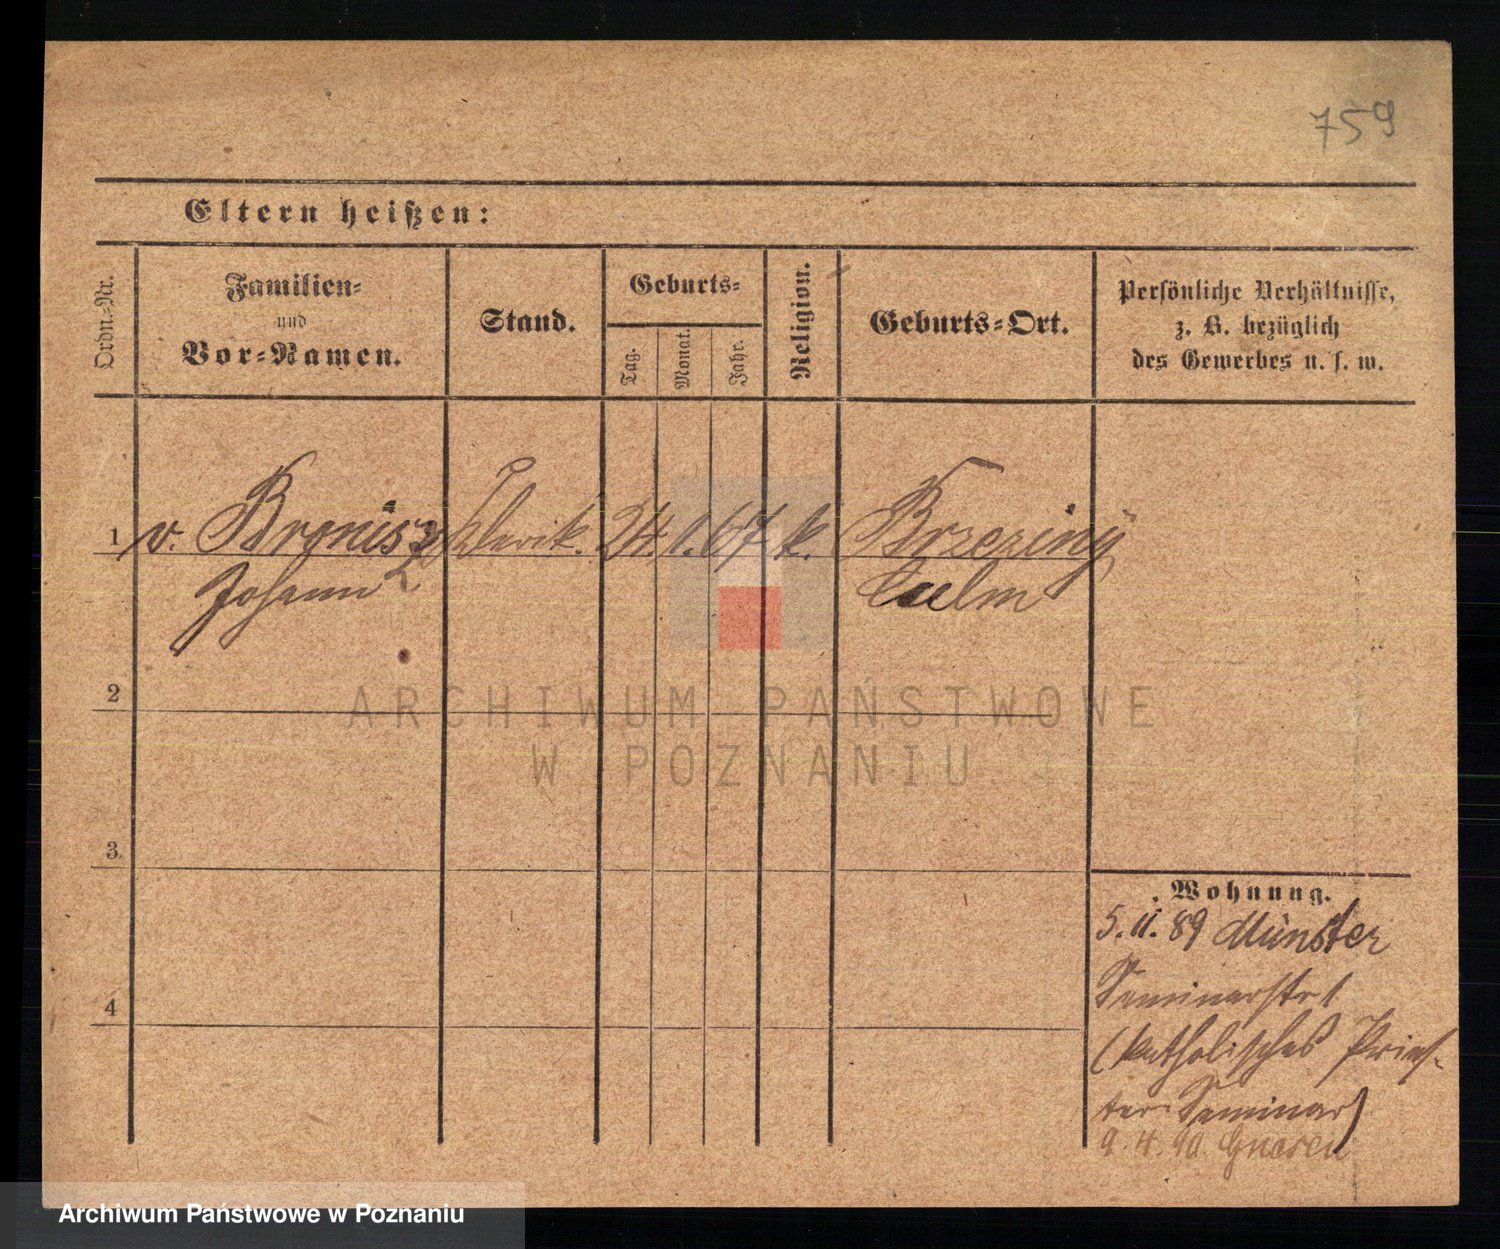 759
Eltern heißen:
Ordn.-Nr.
Familien-
und
Vor-Namen.
Stand.
Geburts-
Tag.
Monat.
Jahr.
Religion.
Geburts-Ort.
Persönliche Verhältnisse,
z. B. bezüglich
des Gewerbes u. s. w.
1 v. Bronisz Klerik. 24. 1. 67 k. Brzeziny
Johann Culm
2
ARCHIWUM PAŃSTWOWE
W POZNANIU
3
Wohnung.
5. 11. 89 Münster
4
Seminarstr 1
(katholisches Pries-
ter Seminar)
9. 4. 90. Gnesen
Archiwum Państwowe w Poznaniu